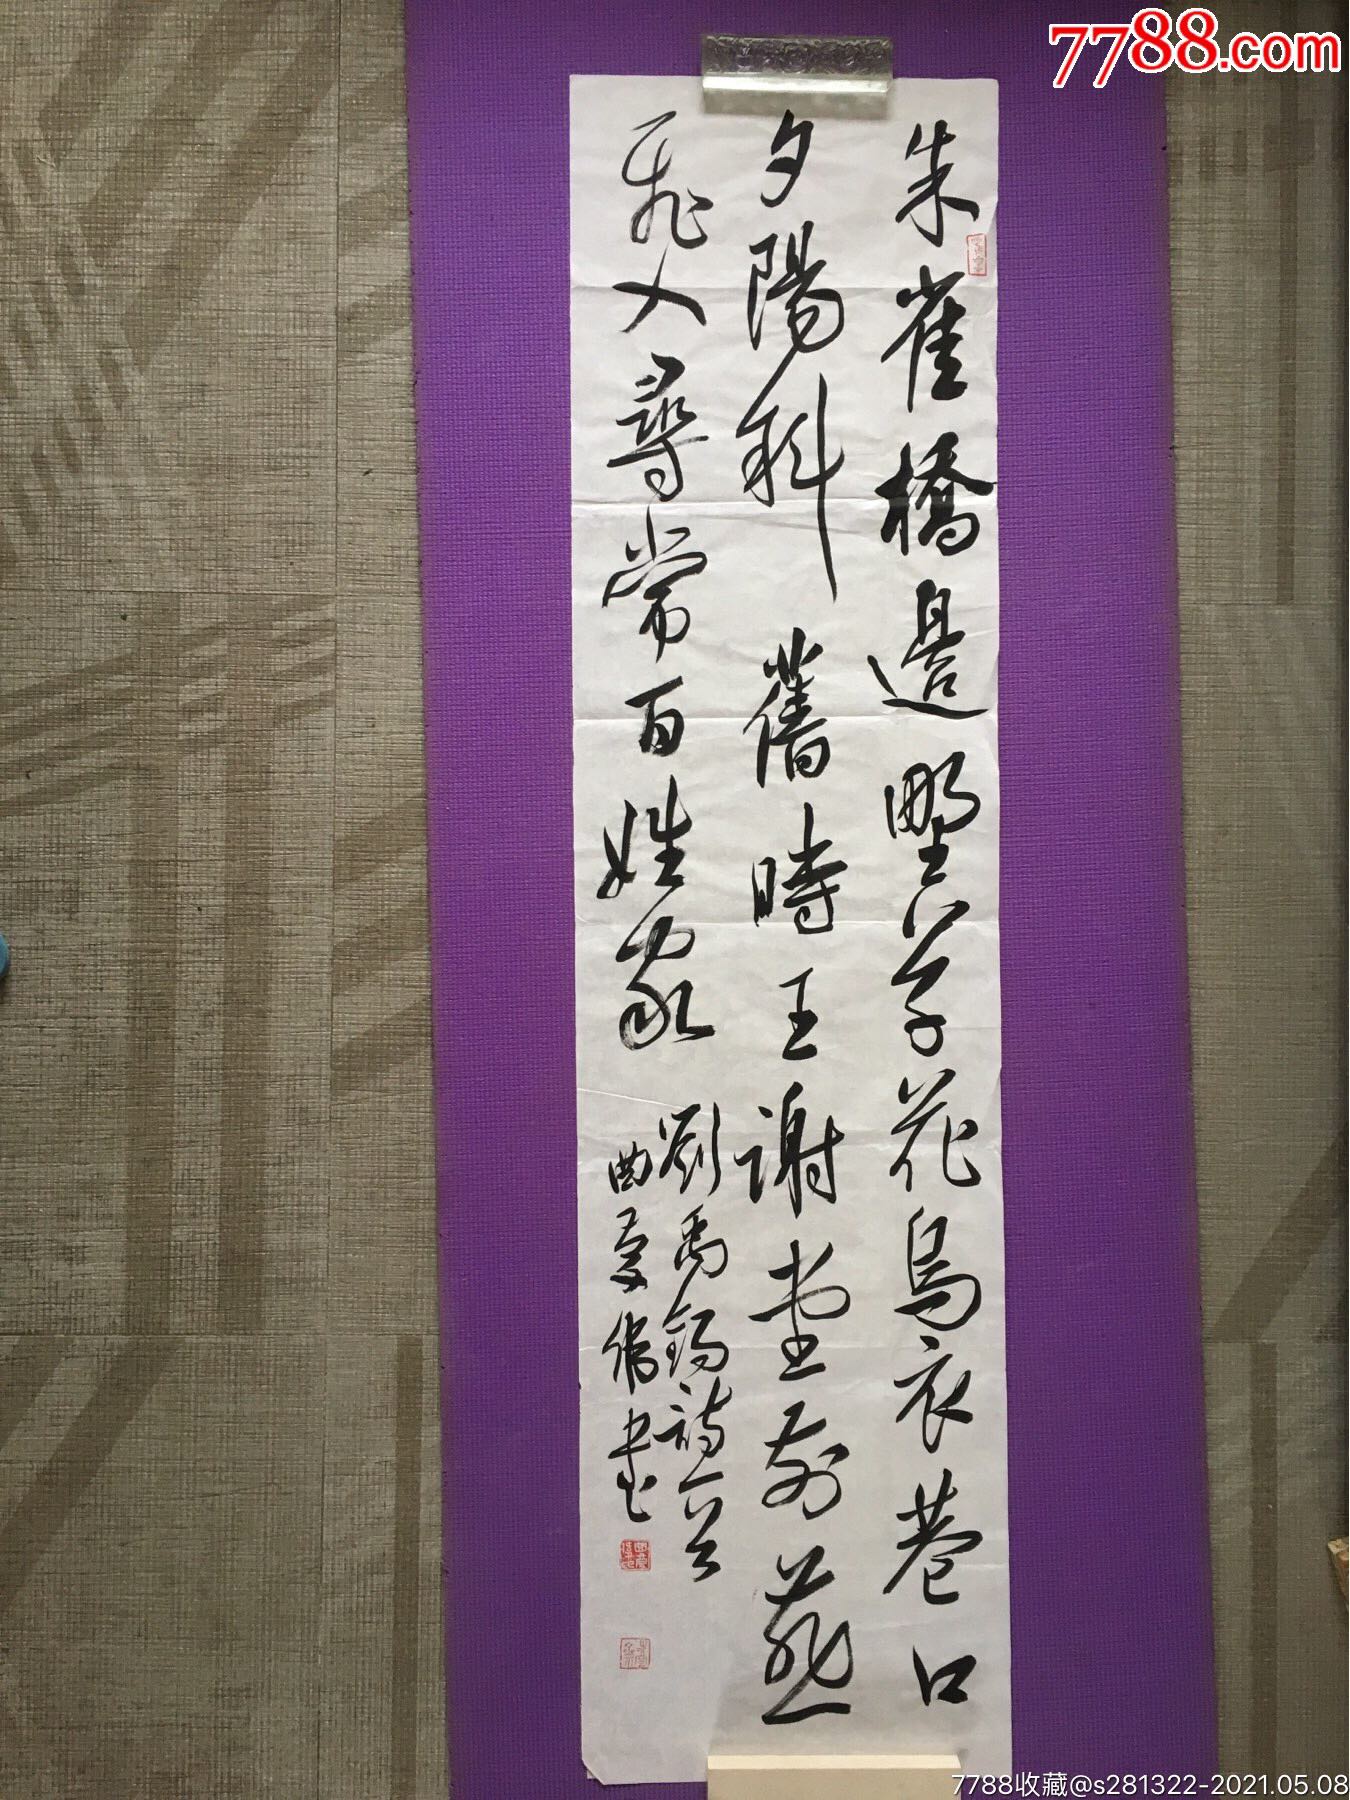 7788.com
朱雀橋邊野草花烏衣巷口
夕陽斜舊時王謝堂前燕
飛入尋常百姓家
劉禹錫詩一首
曲慶偉書
7788收藏@s281322-2021.05.08